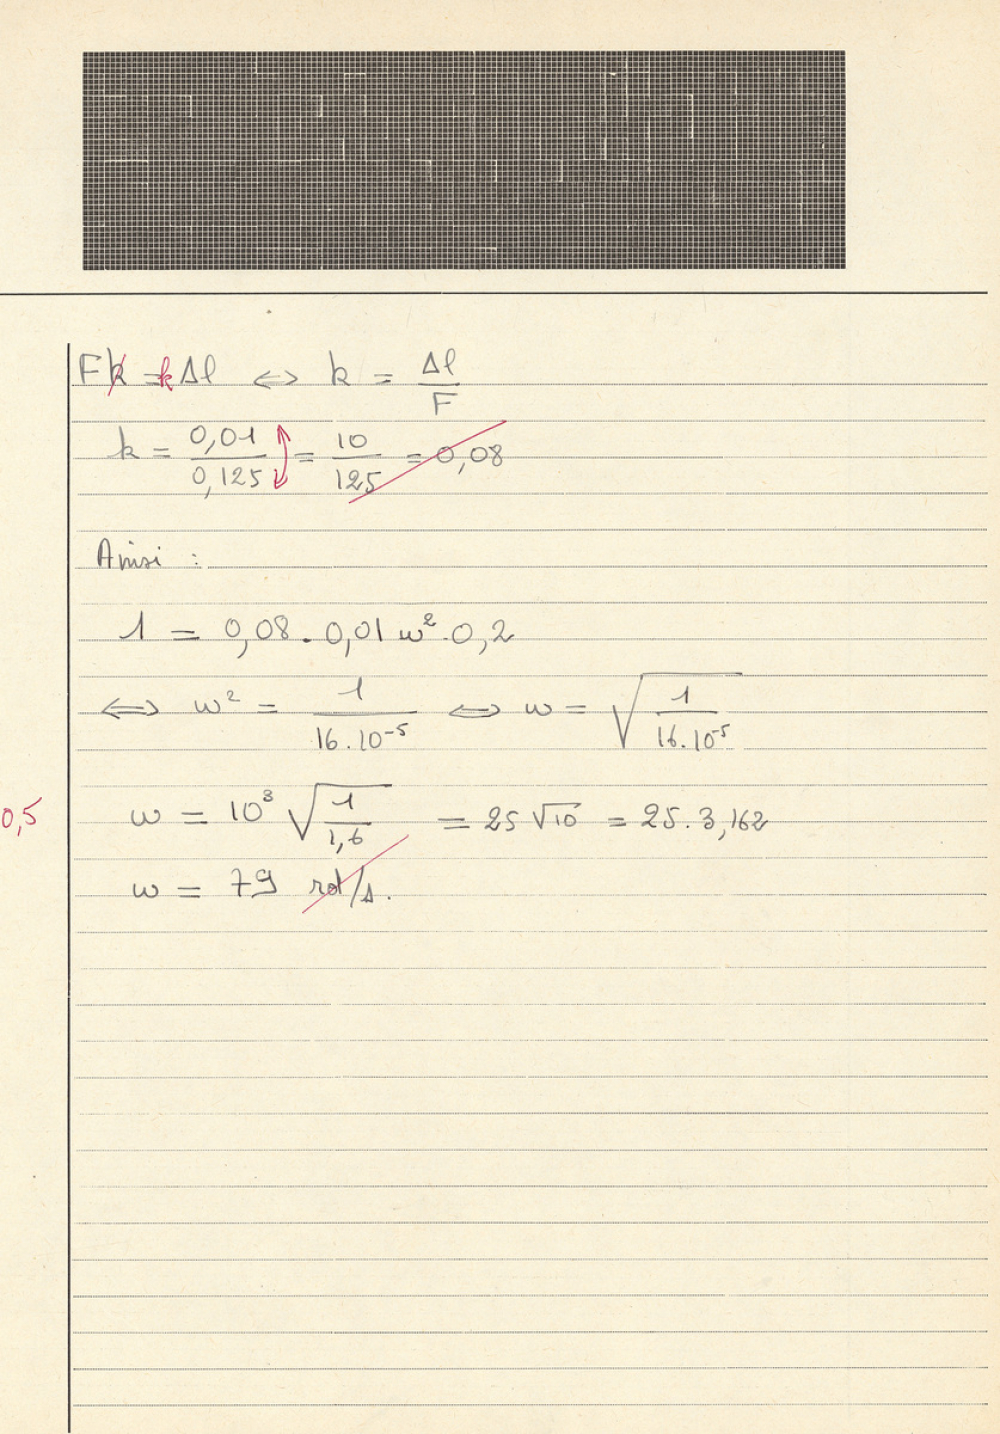 Fk = kΔl ⇔ k = Δl/F
k = 0,01/0,125 = 10/125 = 0,08
Ainsi :
1 = 0,08 . 0,01 w² . 0,2
⇔ w² = 1/16.10⁻⁵ ⇔ w = √(1/16.10⁻⁵)
0,5 w = 10³ √(1/1,6) = 25 √10 = 25 . 3,162
w = 79 rd/s.